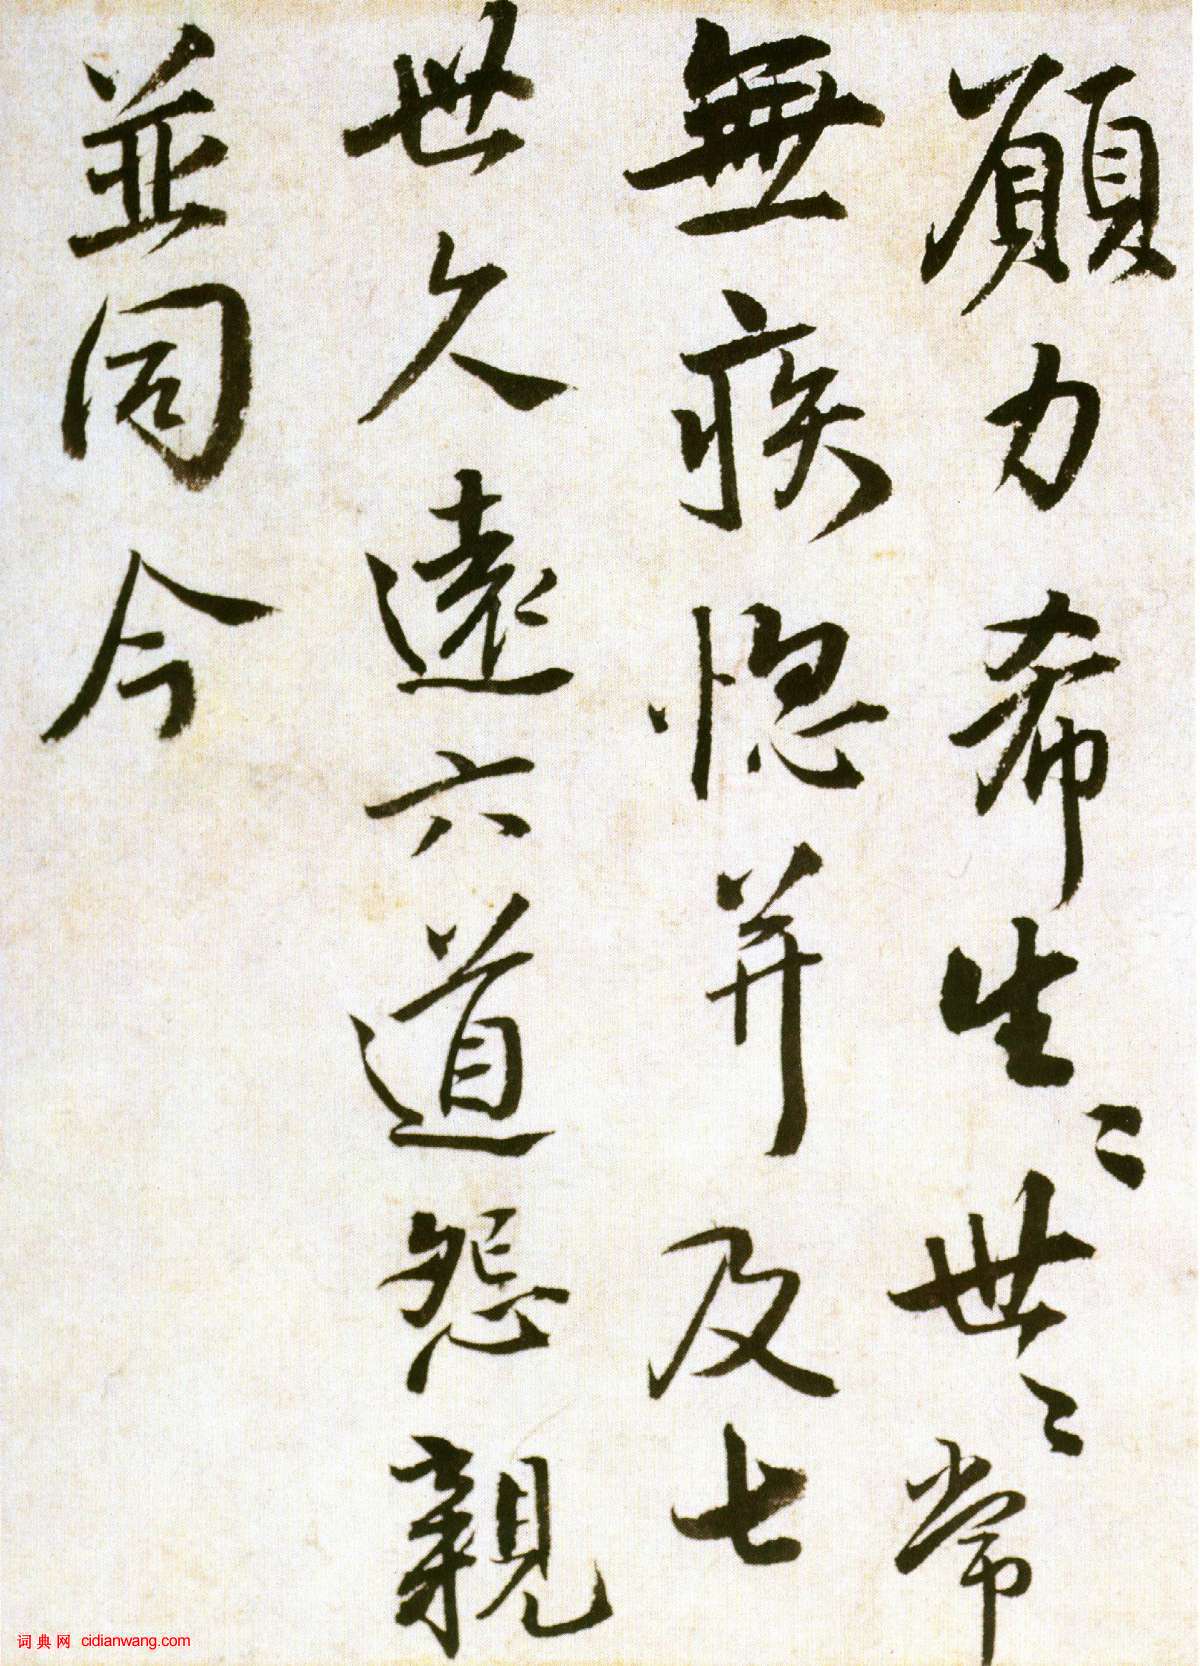 願力希生〻世〻常
無疾惱并及七
世久遠六道怨親
並同今
词典网 cidianwang.com